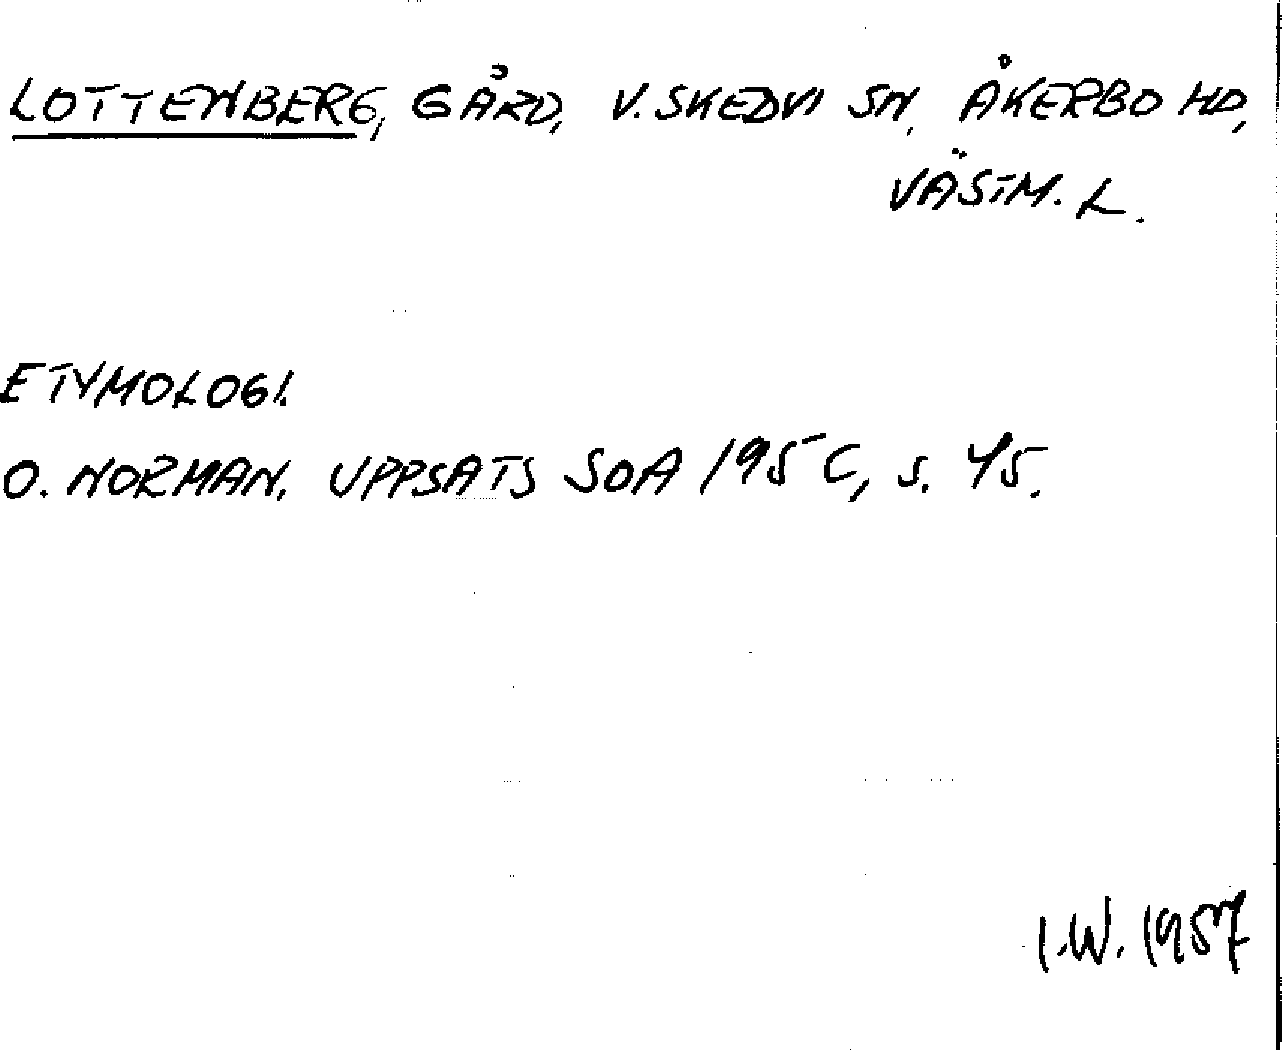 LOTTENBERG, GÅRD, V. SKEDVI SN, ÅKERBO HD,
VÄSTM. L.
ETYMOLOGI.
O. NORMAN. UPPSATS SOA 195 C, s. 45.
I.W. 1957